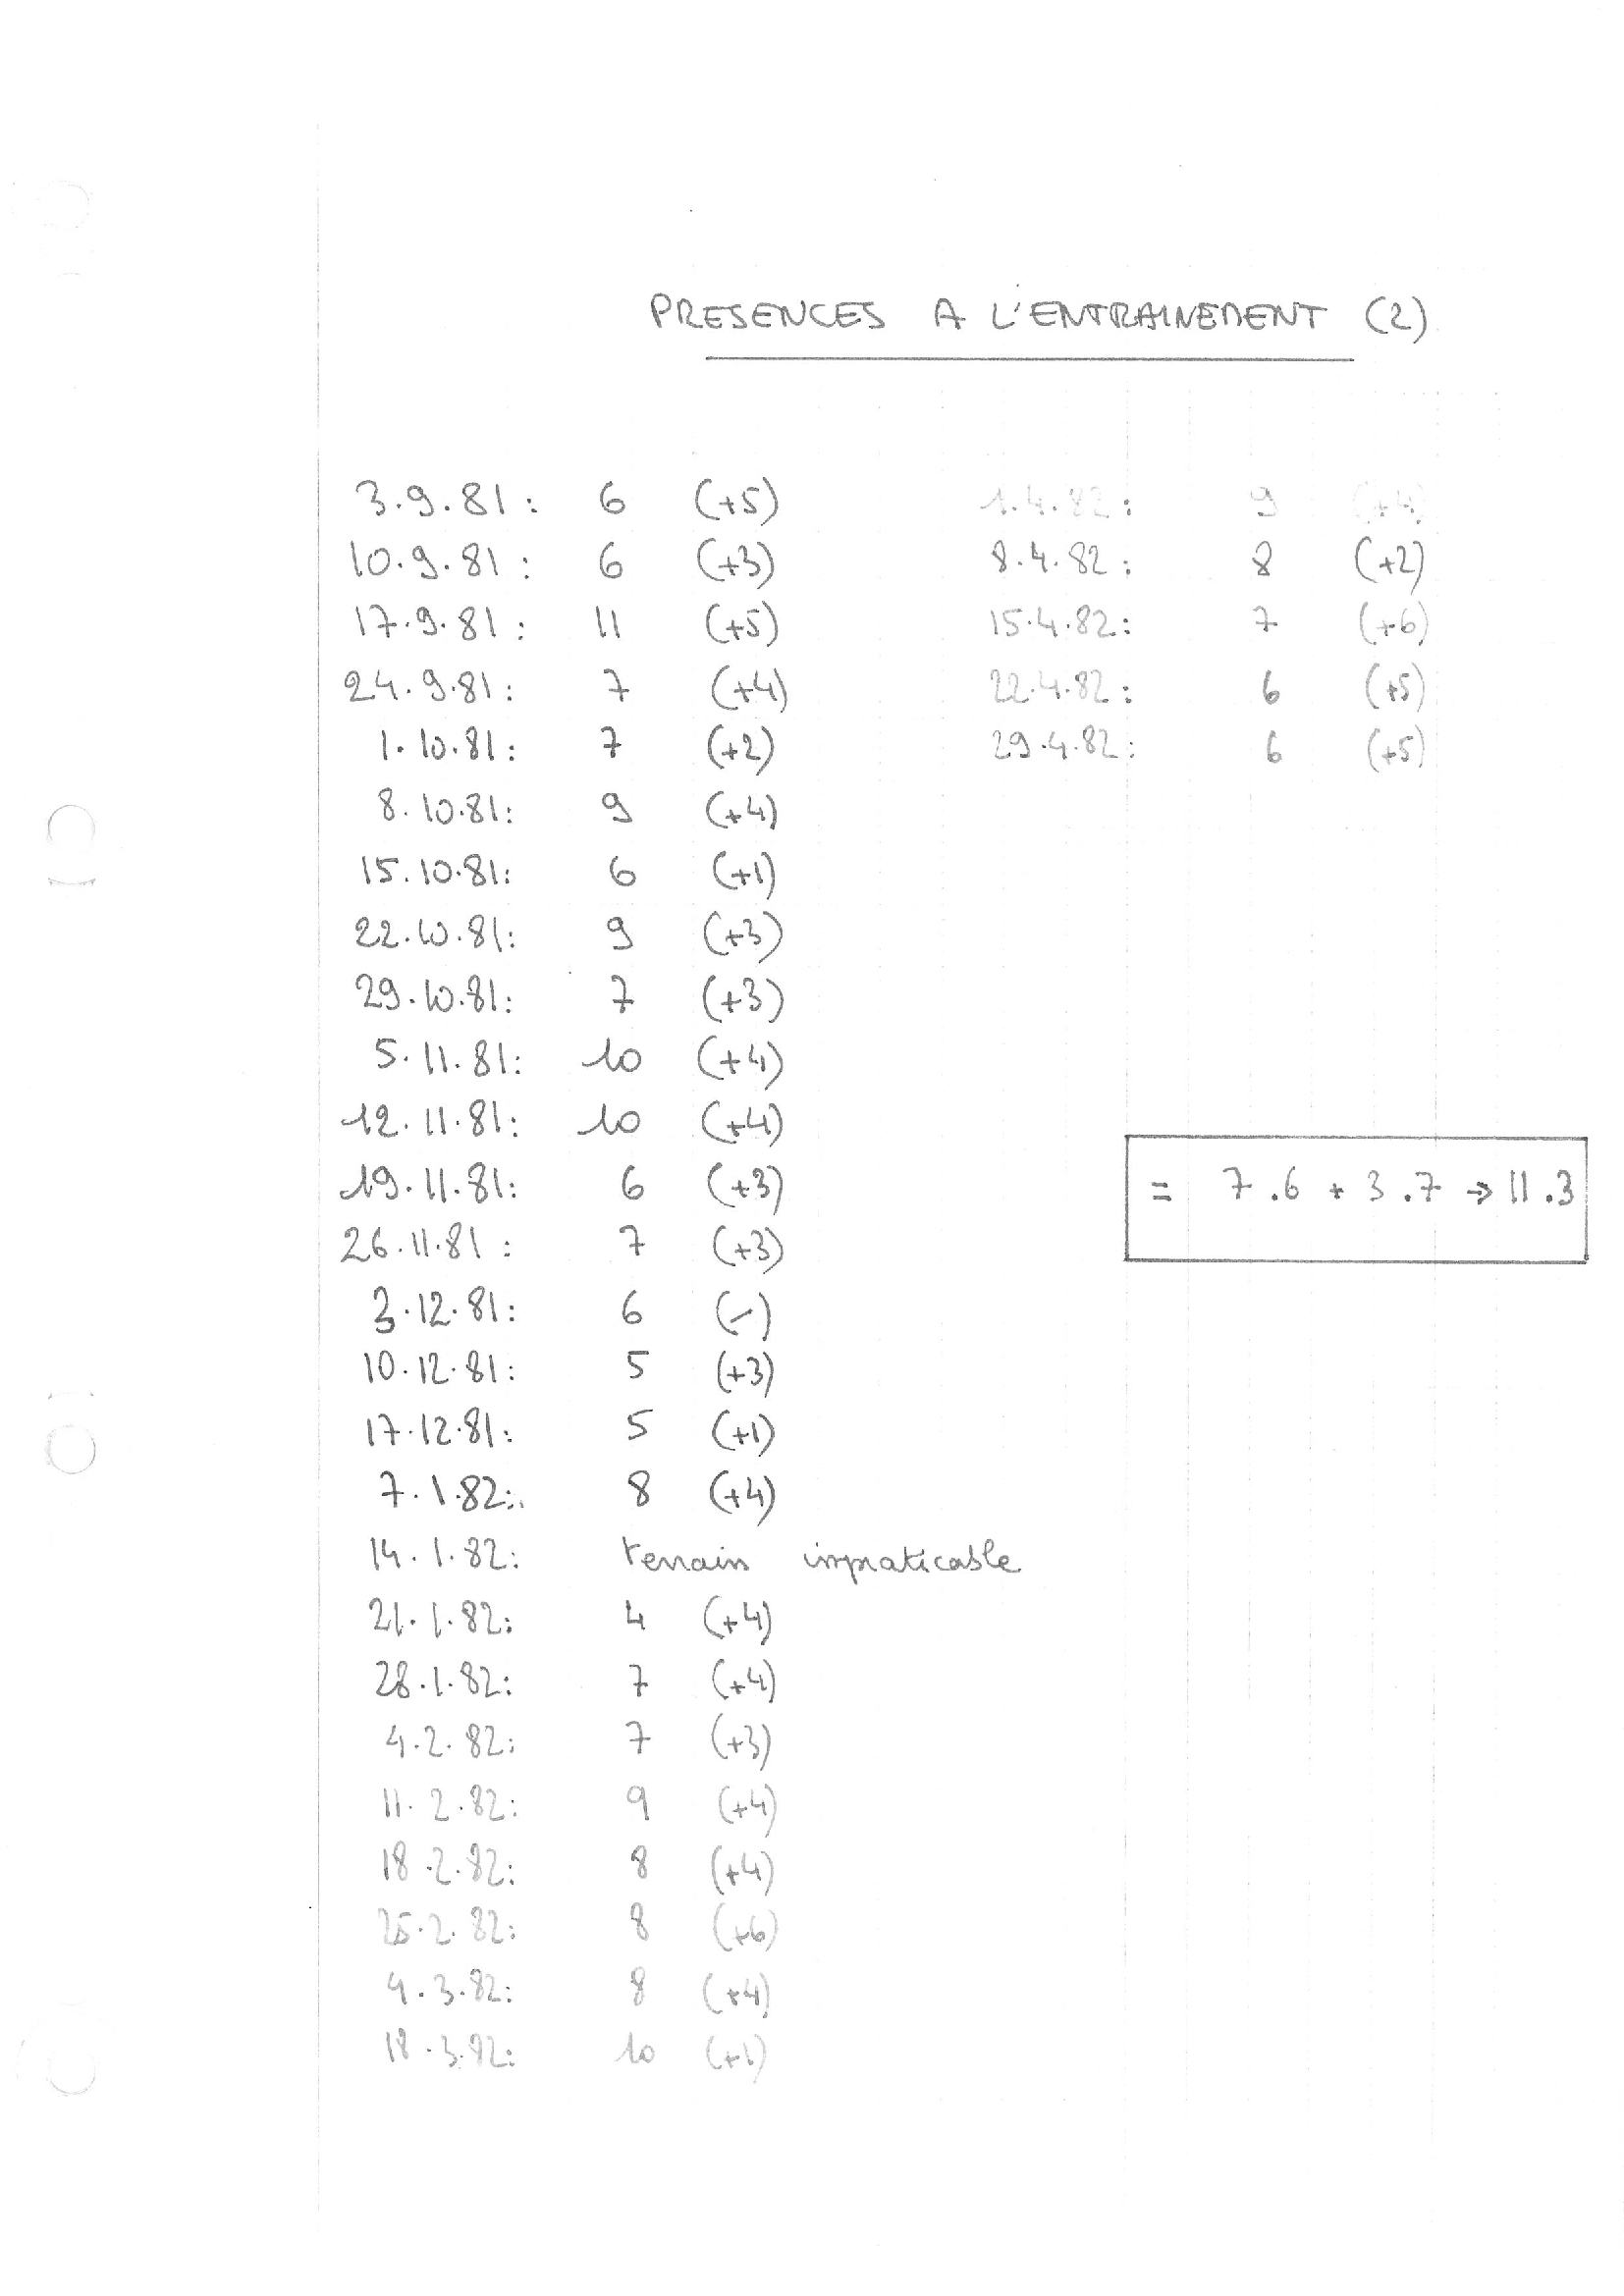 PRESENCES A L'ENTRAINEMENT (2)
3.9.81: 6 (+5)
10.9.81: 6 (+3)
17.9.81: 11 (+5)
24.9.81: 7 (+4)
1.10.81: 7 (+2)
8.10.81: 9 (+4)
15.10.81: 6 (+1)
22.10.81: 9 (+3)
29.10.81: 7 (+3)
5.11.81: 10 (+4)
12.11.81: 10 (+4)
19.11.81: 6 (+3)
26.11.81: 7 (+3)
3.12.81: 6 (-)
10.12.81: 5 (+3)
17.12.81: 5 (+1)
7.1.82: 8 (+4)
14.1.82: terrain impraticable
21.1.82: 4 (+4)
28.1.82: 7 (+4)
4.2.82: 7 (+3)
11.2.82: 9 (+4)
18.2.82: 8 (+4)
25.2.82: 8 (+6)
4.3.82: 8 (+4)
18.3.82: 10 (+1)
1.4.82: 9 (+4)
8.4.82: 8 (+2)
15.4.82: 7 (+6)
22.4.82: 6 (+5)
29.4.82: 6 (+5)
= 7.6 + 3.7 → 11.3